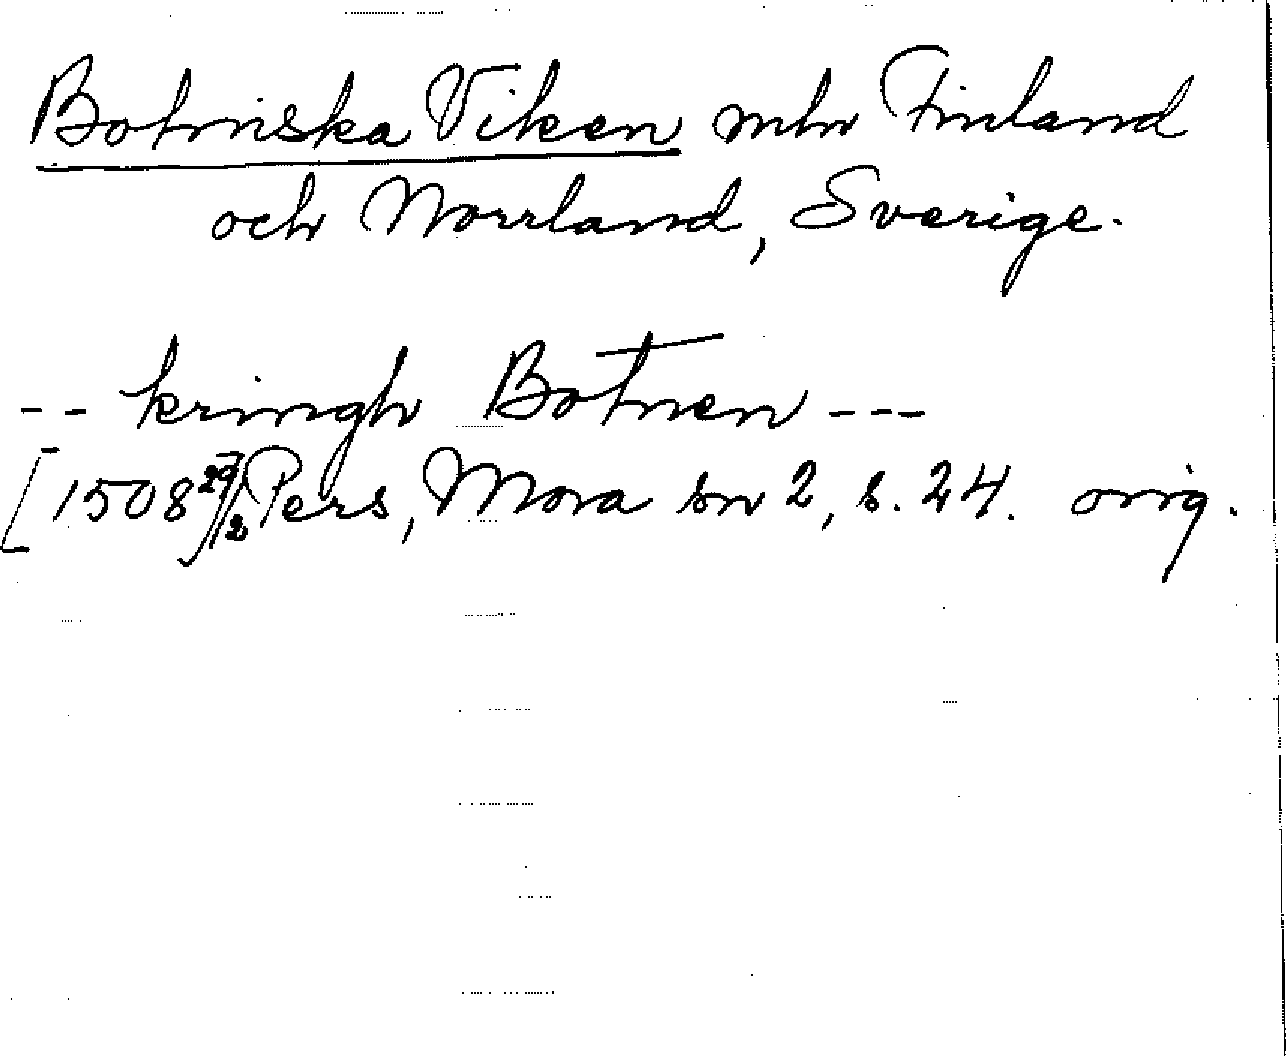 Botniska Viken mln Finland
och Norrland, Sverige.
-- kringh Botnen ---
[1508 29/2 Pers, Mora sn 2, s. 24. orig.